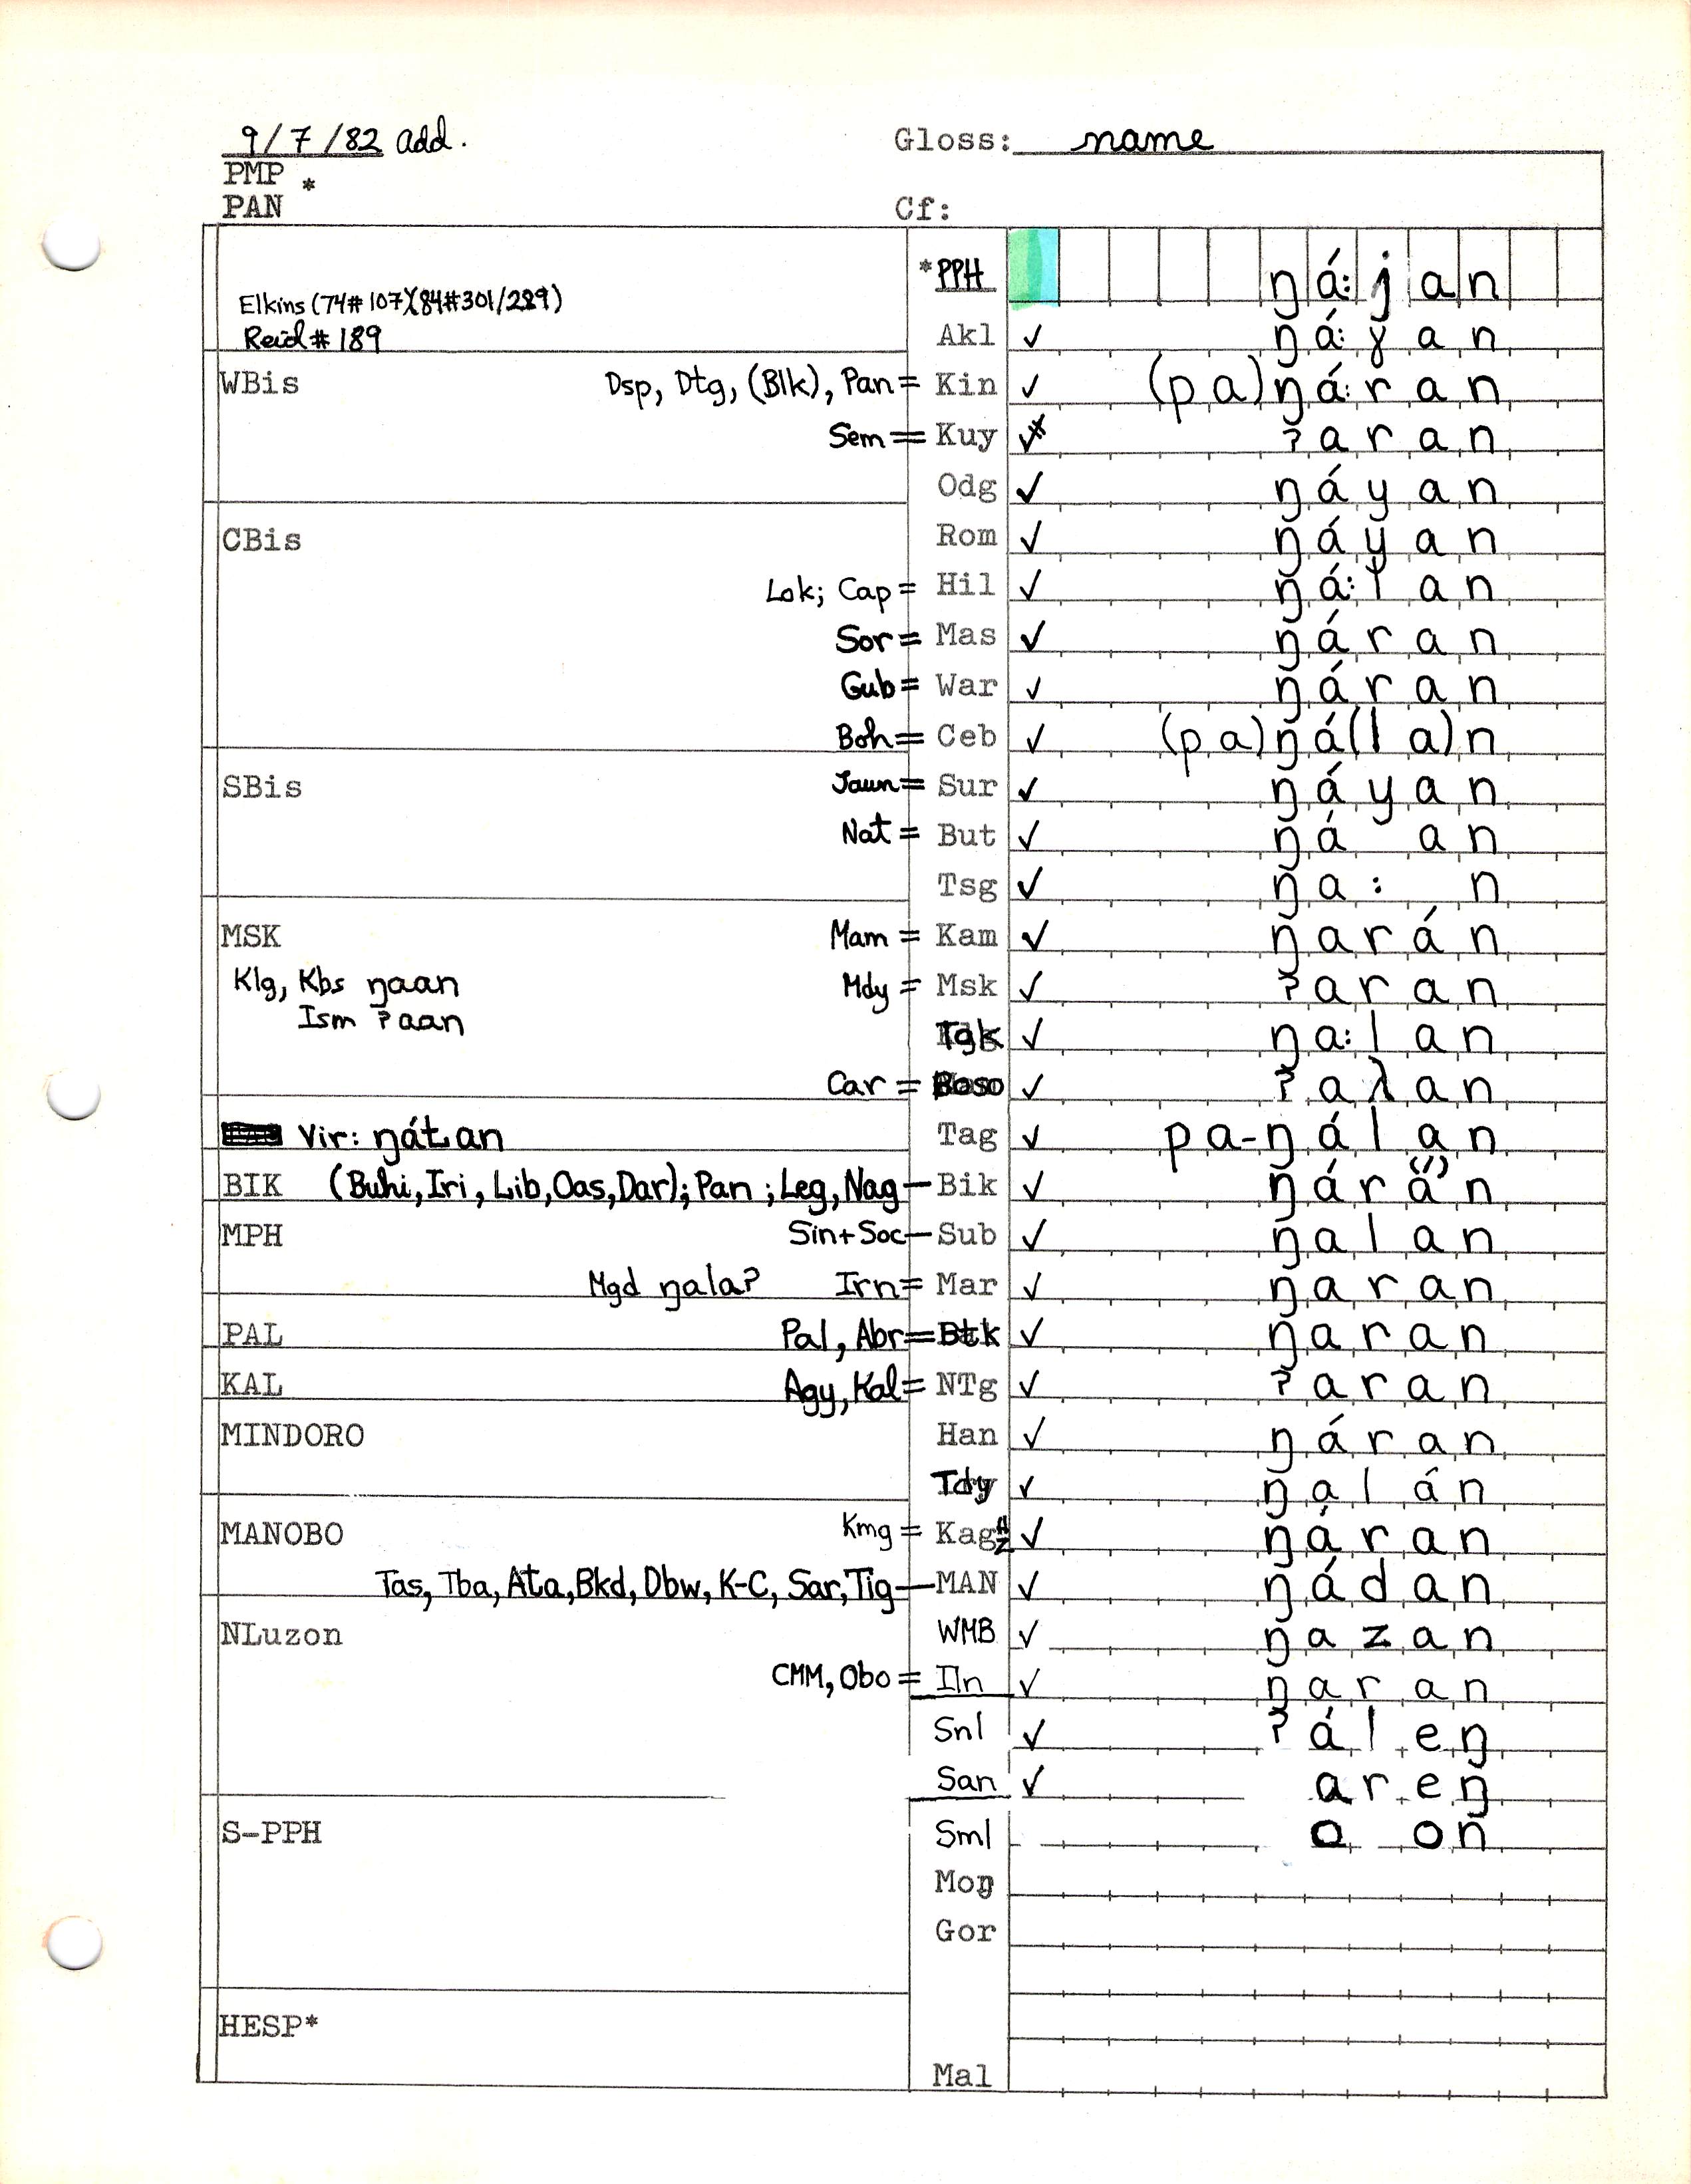 9/7/82 add. Gloss: name
PMP *
PAN Cf:
*PPH ŋá:jan
Elkins (74#107)(84#301/289)
Reid #189
Akl ✓ ŋá:ɣan
WBis Dsp, Dtg, (Blk), Pan = Kin ✓ (pa)ŋá:ran
Sem = Kuy ✓# ʔaran
Odg ✓ ŋáyan
CBis Rom ✓ ŋáyan
Lok; Cap = Hil ✓ ŋá:lan
Sor = Mas ✓ ŋáran
Gub = War ✓ ŋáran
Boh = Ceb ✓ (pa)ŋá(la)n
SBis Jaun = Sur ✓ ŋáyan
Nat = But ✓ ŋá an
Tsg ✓ ŋa: n
MSK Mam = Kam ✓ ŋarán
Klg, Kbs ŋaan Mdy = Msk ✓ ʔaran
Ism ʔaan
Tgk ✓ ŋa:lan
Car = Boso ✓ ʔaλan
Vir: ŋátan Tag ✓ pa-ŋálan
BIK (Buhi, Iri, Lib, Oas, Dar); Pan; Leg, Nag — Bik ✓ ŋárá(/)n
MPH Sin+Soc — Sub ✓ ŋalan
Mgd ŋalaʔ Irn = Mar ✓ ŋaran
PAL Pal, Abr = Btk ✓ ŋaran
KAL Agy, Kal = NTg ✓ ʔaran
MINDORO Han ✓ ŋáran
Tdy ✓ ŋalán
MANOBO Kmg = Kag ✓ ŋáran
Tas, Tba, Ata, Bkd, Dbw, K-C, Sar, Tig — MAN ✓ ŋádan
NLuzon WMB ✓ ŋazan
CMM, Obo = Iln ✓ ŋaran
Snl ✓ ʔáleŋ
San ✓ areŋ
S-PPH Sml o on
Moŋ
Gor
HESP*
Mal